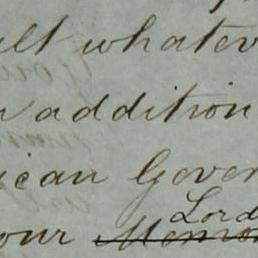 ult whatev
n addition
ican Gover
Lord
our Memor